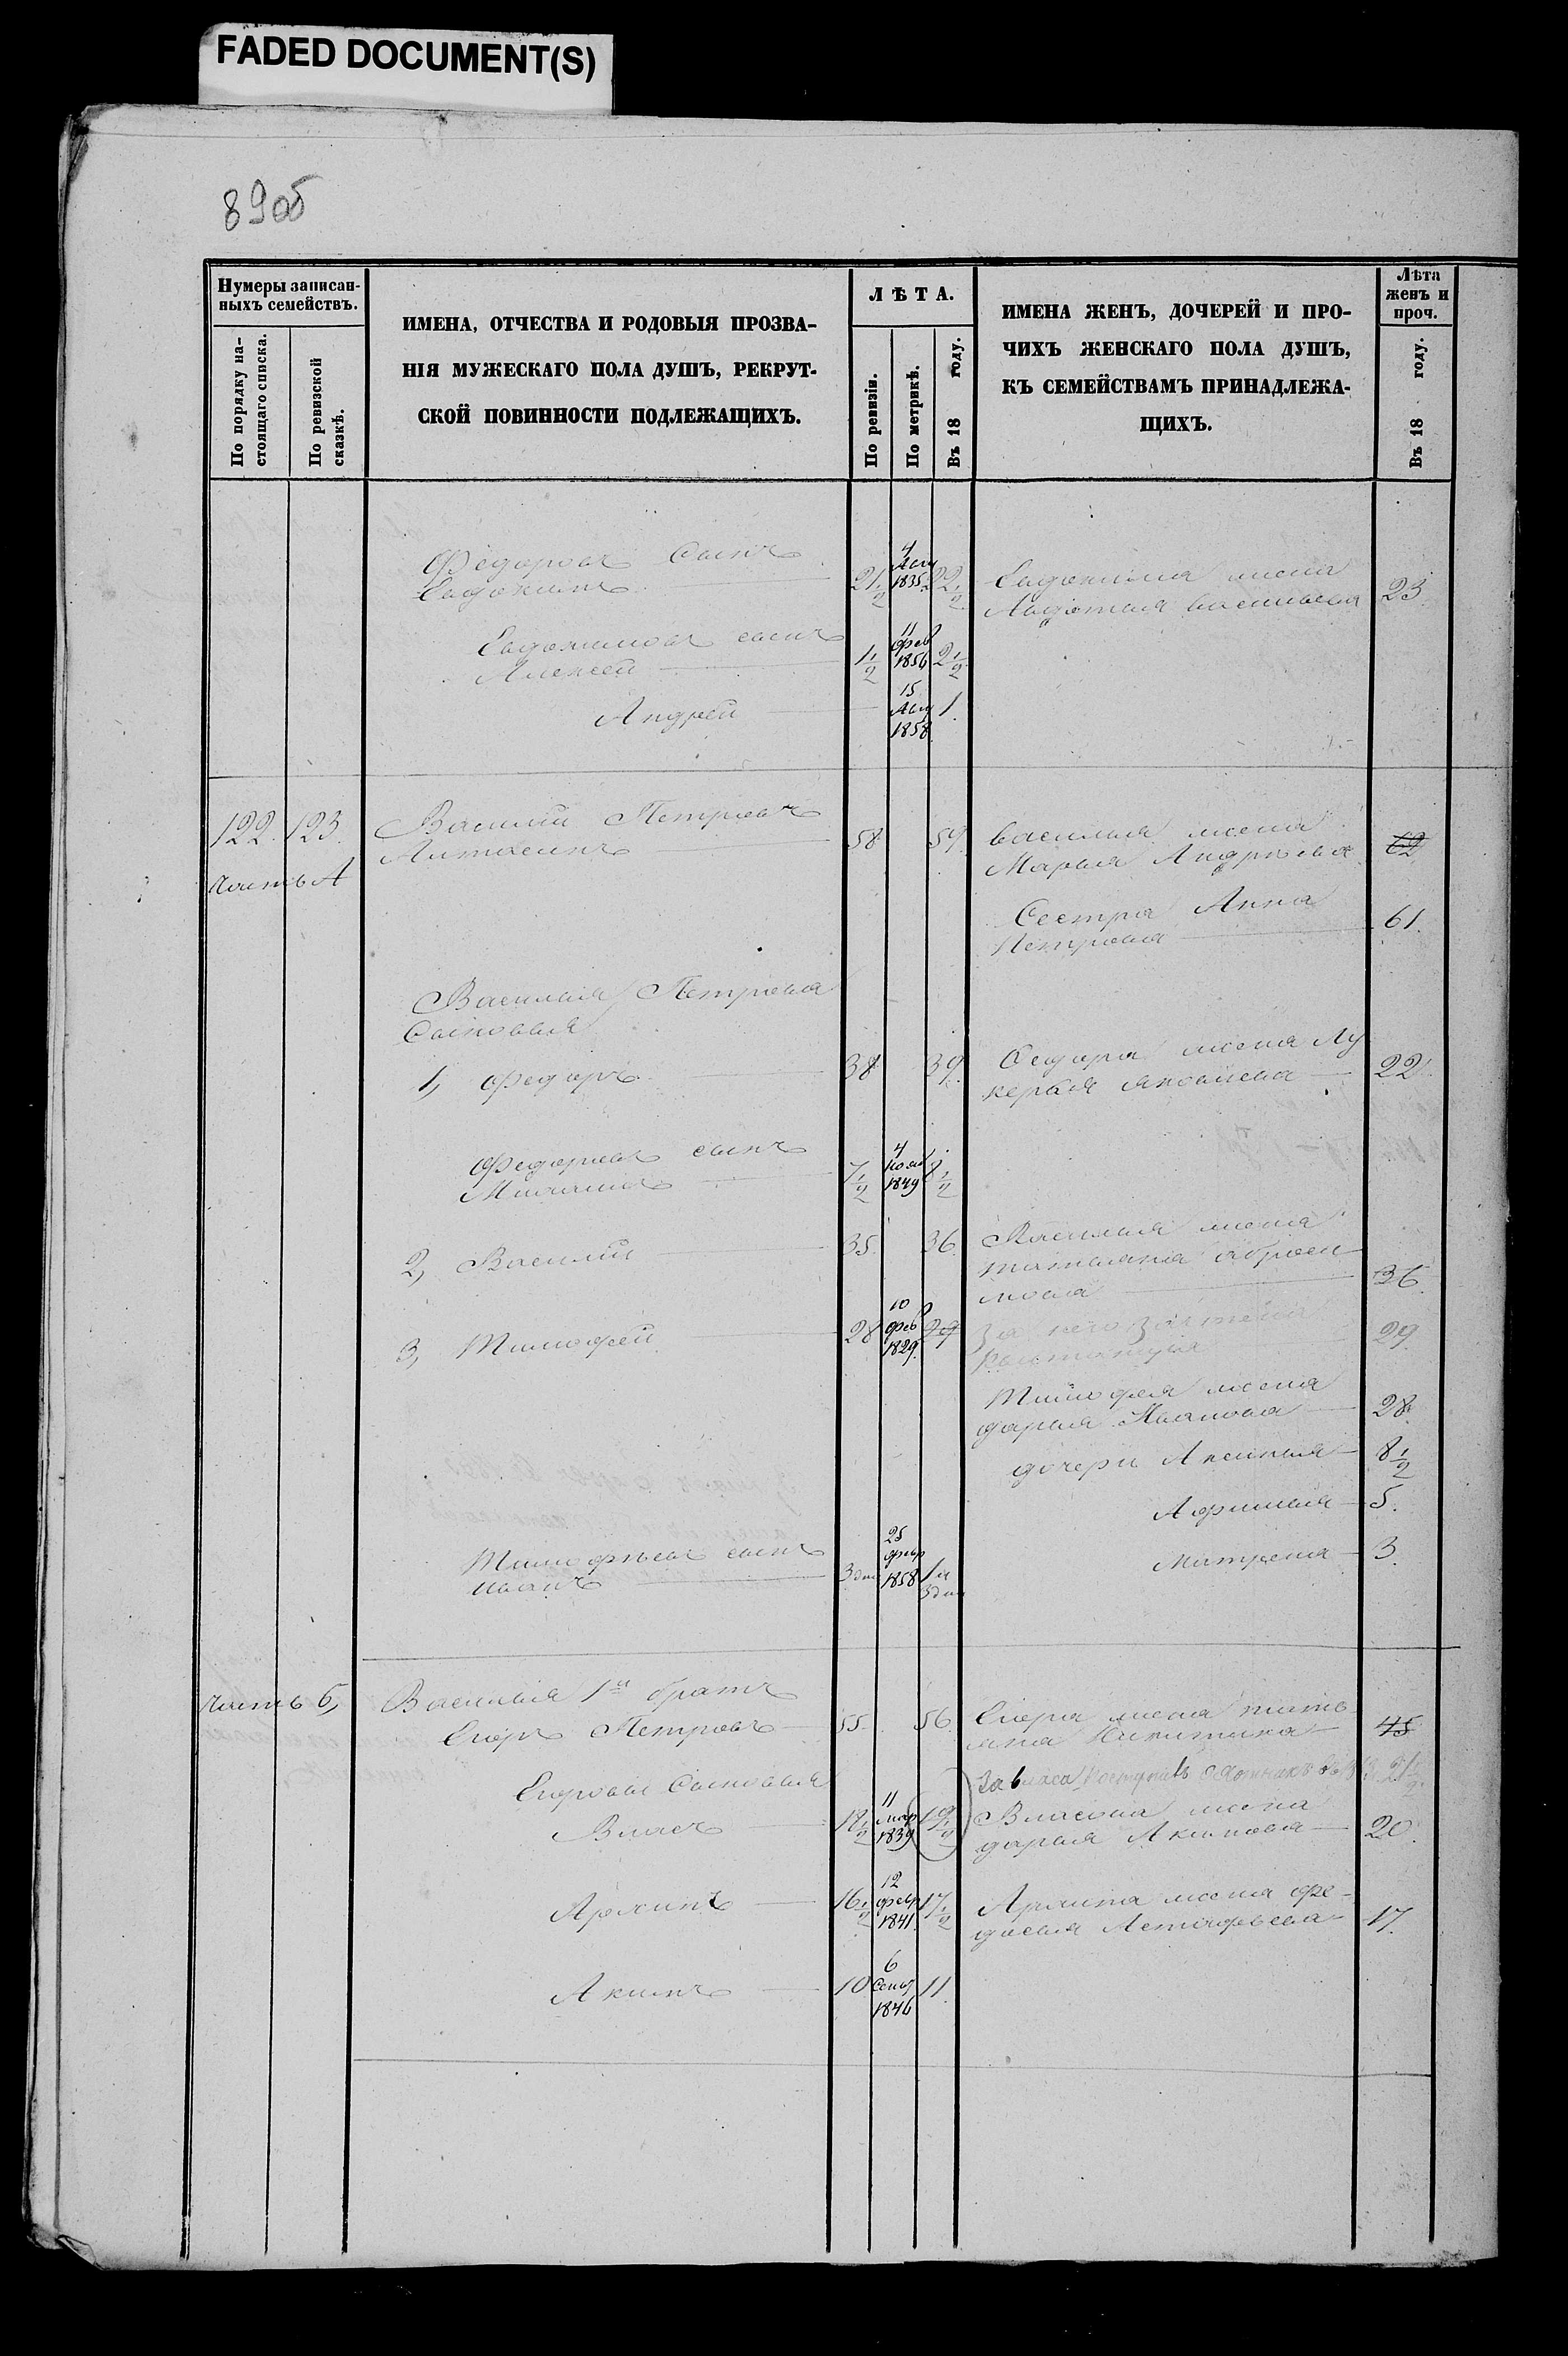 FADED DOCUMENT(S)
89об
Нумеры записан-
ныхъ семействъ.
По порядку на-
стоящаго списка.
По ревизской
сказкѣ.
ИМЕНА, ОТЧЕСТВА И РОДОВЫЯ ПРОЗВА-
НІЯ МУЖЕСКАГО ПОЛА ДУШЪ, РЕКРУТ-
СКОЙ ПОВИННОСТИ ПОДЛЕЖАЩИХЪ.
ЛѢТА.
По ревизіи.
По метрикѣ.
Въ 18 году.
ИМЕНА ЖЕНЪ, ДОЧЕРЕЙ И ПРО-
ЧИХЪ ЖЕНСКАГО ПОЛА ДУШЪ,
КЪ СЕМЕЙСТВАМЪ ПРИНАДЛЕЖА-
ЩИХЪ.
Лѣта
женъ и
проч.
Въ 18 году.
Федоровъ Сынъ
Евдокимъ 21 1/2 4 Авгу 1835. 22 1/2
Евдокима жена
Авдотья Васильева 23
Евдокимовъ сынъ
Алексей 1 1/2 11 фев 1856 2 1/2
Андрей 15 Авгу 1858 1.
122. 123. Василий Петровъ
58 59.
часть А
Василья жена
Марья Андрѣева 62
Сестра Анна
Петрова 61.
Василья Петрова
Сыновья
1, Федоръ 38 39.
Федора жена Лу
керья 22
Федоровъ сынъ
7 1/2 4 1849 8 1/2
2, Василий 35. 36.
Василья жена
татьяна
мова 36.
3, Тимофей 28 10 фев 1829. 29
За него зачтена
квитанция 29.
Тимофея жена
дарья Иванова 28.
дочери Аксинья 8 1/2
Афимья 5.
Матрена 3.
Тимофѣевъ сынъ
Иванъ 3 дни 25 февр 1858 1 и 3 дни
часть б, Василья 1й братъ
Егоръ Петровъ 55. 56.
Егора жена тать-
яна Никитина 45
Егоровы Сыновья
За власа 21 1/2
Власъ 18 1/2 11 мар 1839 19 1/2
Власова жена
дарья Акимова 20.
Архипъ 16 1/2 12 февр 1841. 17 1/2
Архипа жена фе-
досья Астафьева 17.
Акимъ 10 6 Сент 1846 11.